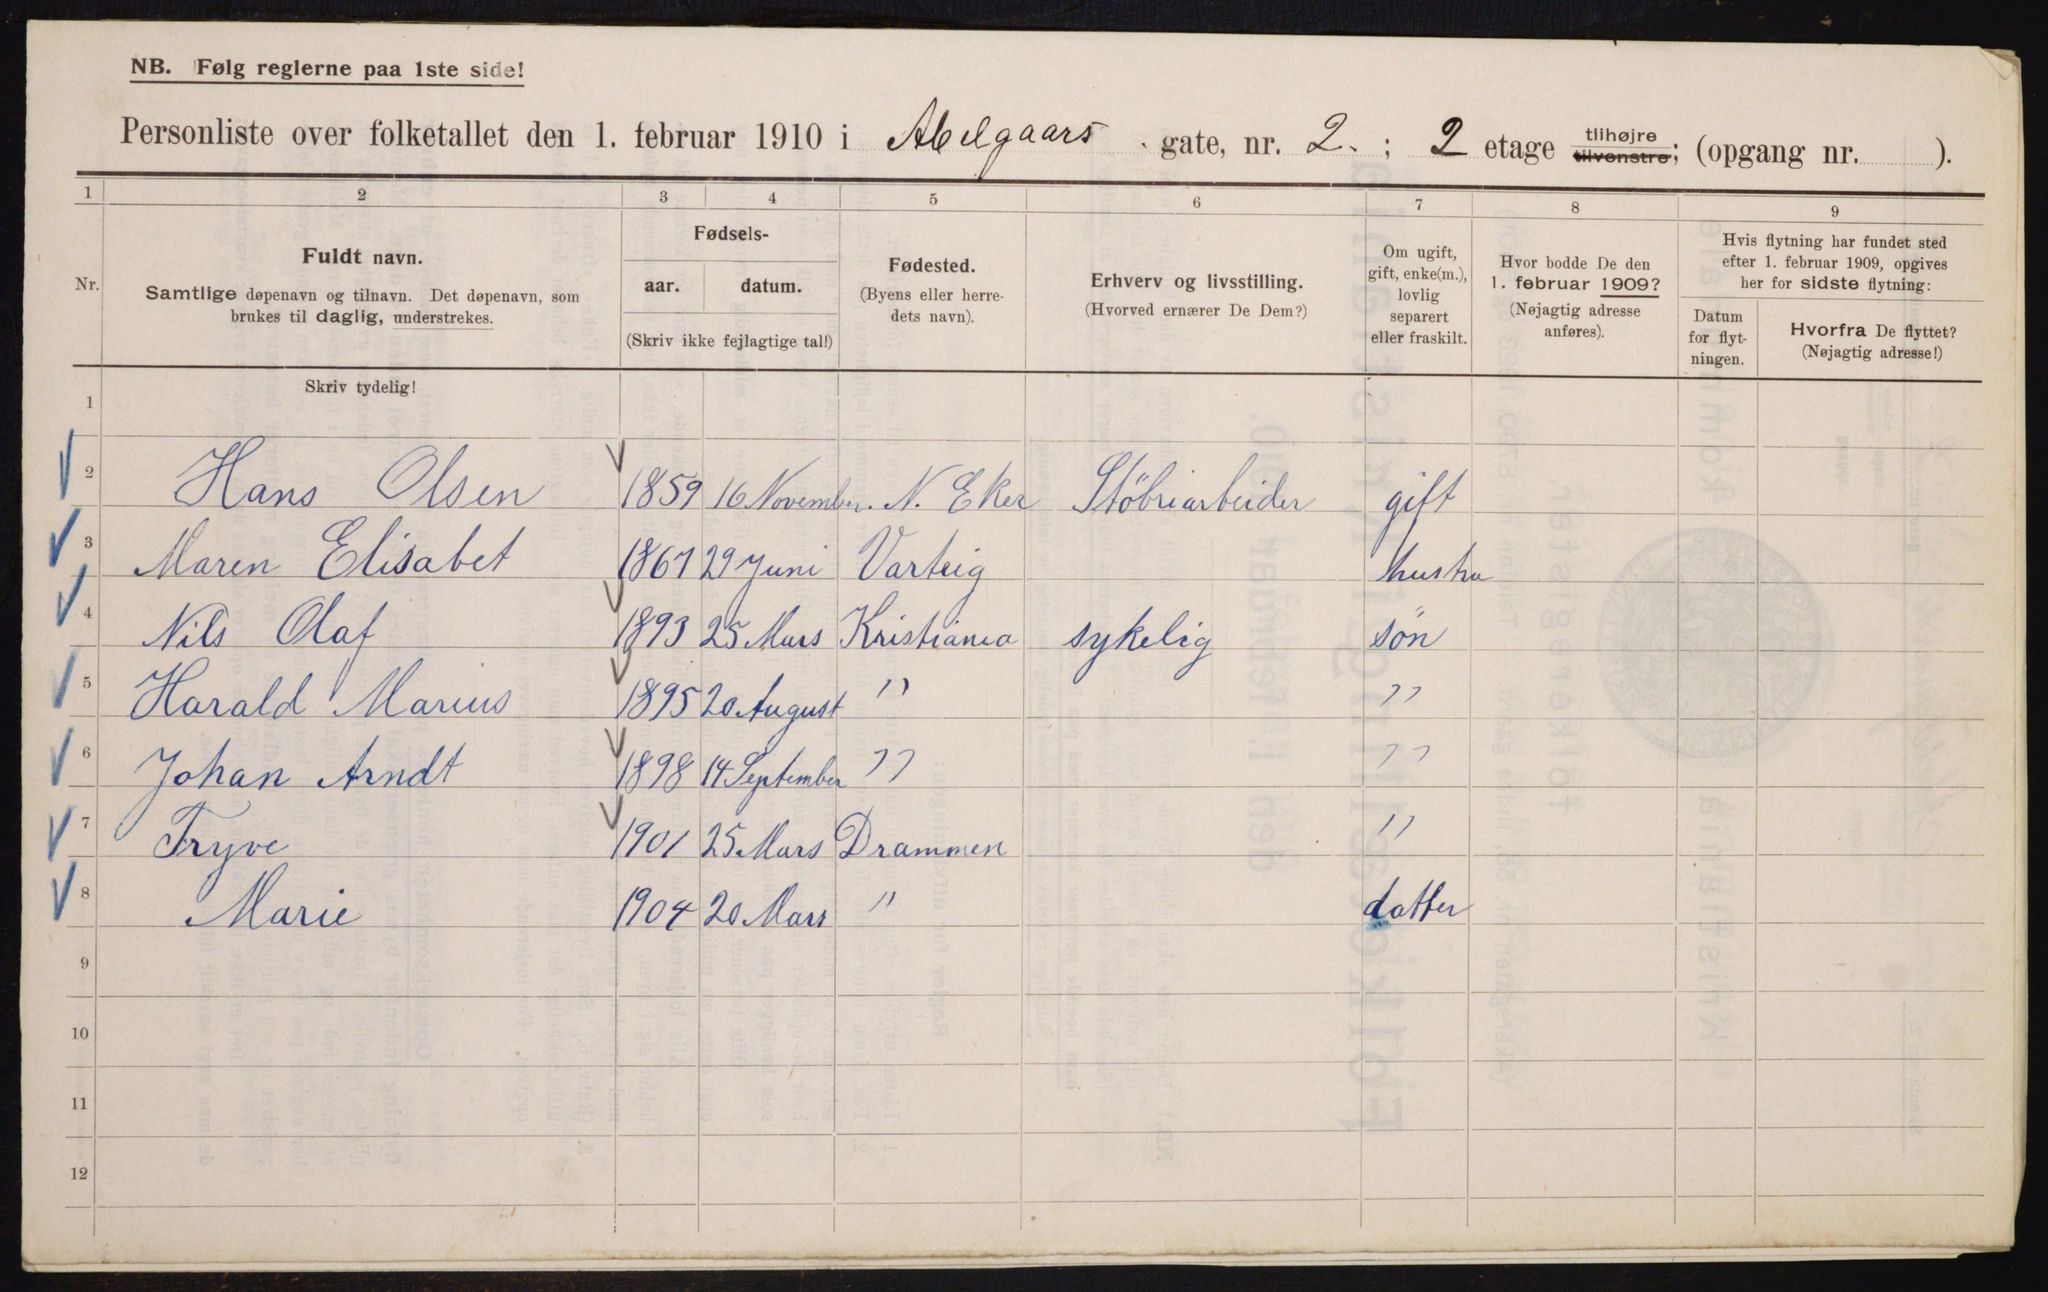 NB. Følg reglerne paa 1ste side!
Personliste over folketallet den 1. februar 1910 i Abelgaars gate, nr. 2. ; 2 etage tilhøjre tilvenstre; (opgang nr. ).
1 2 3 4 5 6 7 8 9
Nr.
Fuldt navn.
Samtlige døpenavn og tilnavn. Det døpenavn, som
brukes til daglig, understrekes.
Fødsels-
aar. datum.
(Skriv ikke fejlagtige tal!)
Fødested.
(Byens eller herre-
dets navn).
Erhverv og livsstilling.
(Hvorved ernærer De Dem?)
Om ugift,
gift, enke(m.),
lovlig
separert
eller fraskilt.
Hvor bodde De den
1. februar 1909?
(Nøjagtig adresse
anføres).
Hvis flytning har fundet sted
efter 1. februar 1909, opgives
her for sidste flytning:
Datum
for flyt-
ningen.
Hvorfra De flyttet?
(Nøjagtig adresse!)
Skriv tydelig!
1
2 Hans Olsen 1859 16 November. N. Eker Stöbriarbeider gift
3 Maren Elisabet 1867 29 Juni Varteig hustru
4 Nils Olaf 1893 25 Mars Kristiania sykelig sön
5 Harald Marius 1895 20 August " "
6 Johan Arndt 1898 14 September " "
7 Tryve 1901 25 Mars Drammen "
8 Marie 1904 20 Mars " datter
9
10
11
12